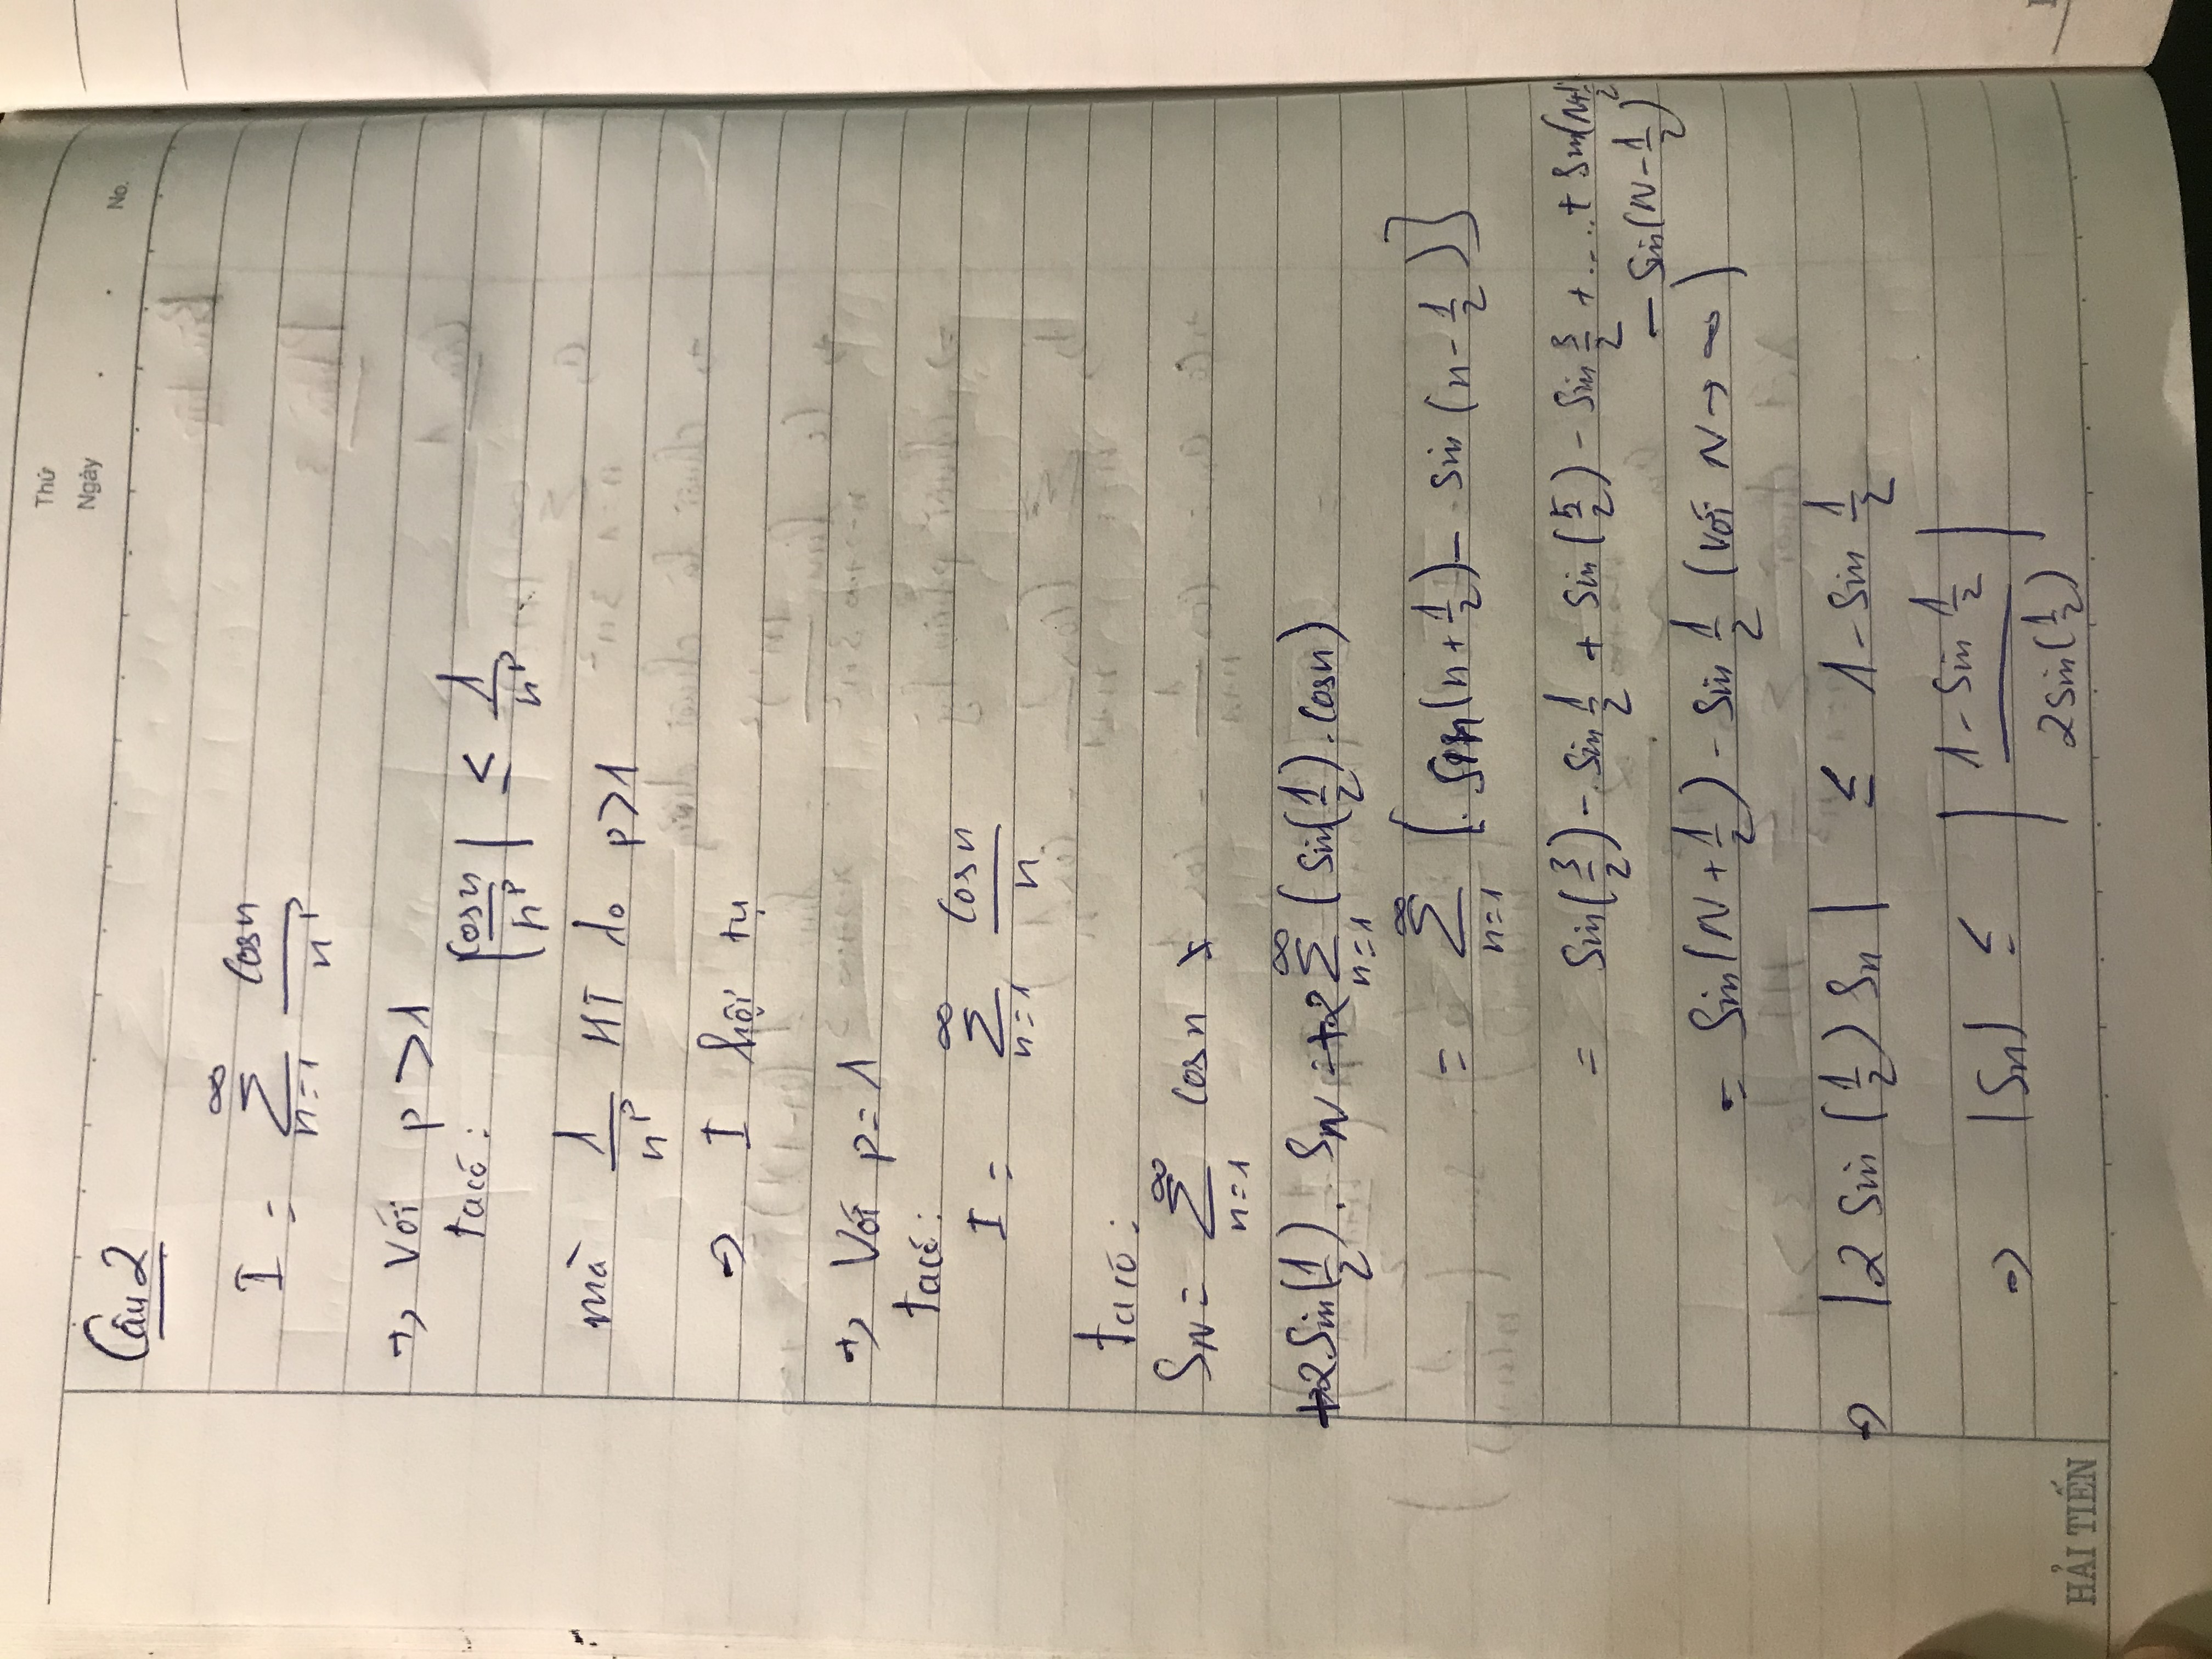 Thứ
Ngày
No.
Câu 2
I = ∑_{n=1}^{∞} cosn / n^p
+, Với p > 1
ta có: |cosn / n^p| ≤ 1 / n^p
mà 1 / n^p HT do p>1
=> I hội tụ
+, Với p = 1
ta có:
I = ∑_{n=1}^{∞} cosn / n
ta có:
S_N = ∑_{n=1}^{∞} cosn
2Sin(1/2) . S_N = 2 ∑_{n=1}^{∞} (Sin(1/2) . cosn)
= ∑_{n=1}^{∞} [Sin(n + 1/2) - Sin(n - 1/2)]
= Sin(3/2) - Sin 1/2 + Sin(5/2) - Sin 3/2 + .... + Sin(N+1/2)
- Sin(N - 1/2)
= Sin(N + 1/2) - Sin 1/2 (với N → ∞)
=> |2 Sin(1/2) Sn| ≤ 1 - Sin 1/2
=> |Sn| ≤ |(1 - Sin 1/2) / (2 Sin(1/2))|
HẢI TIẾN